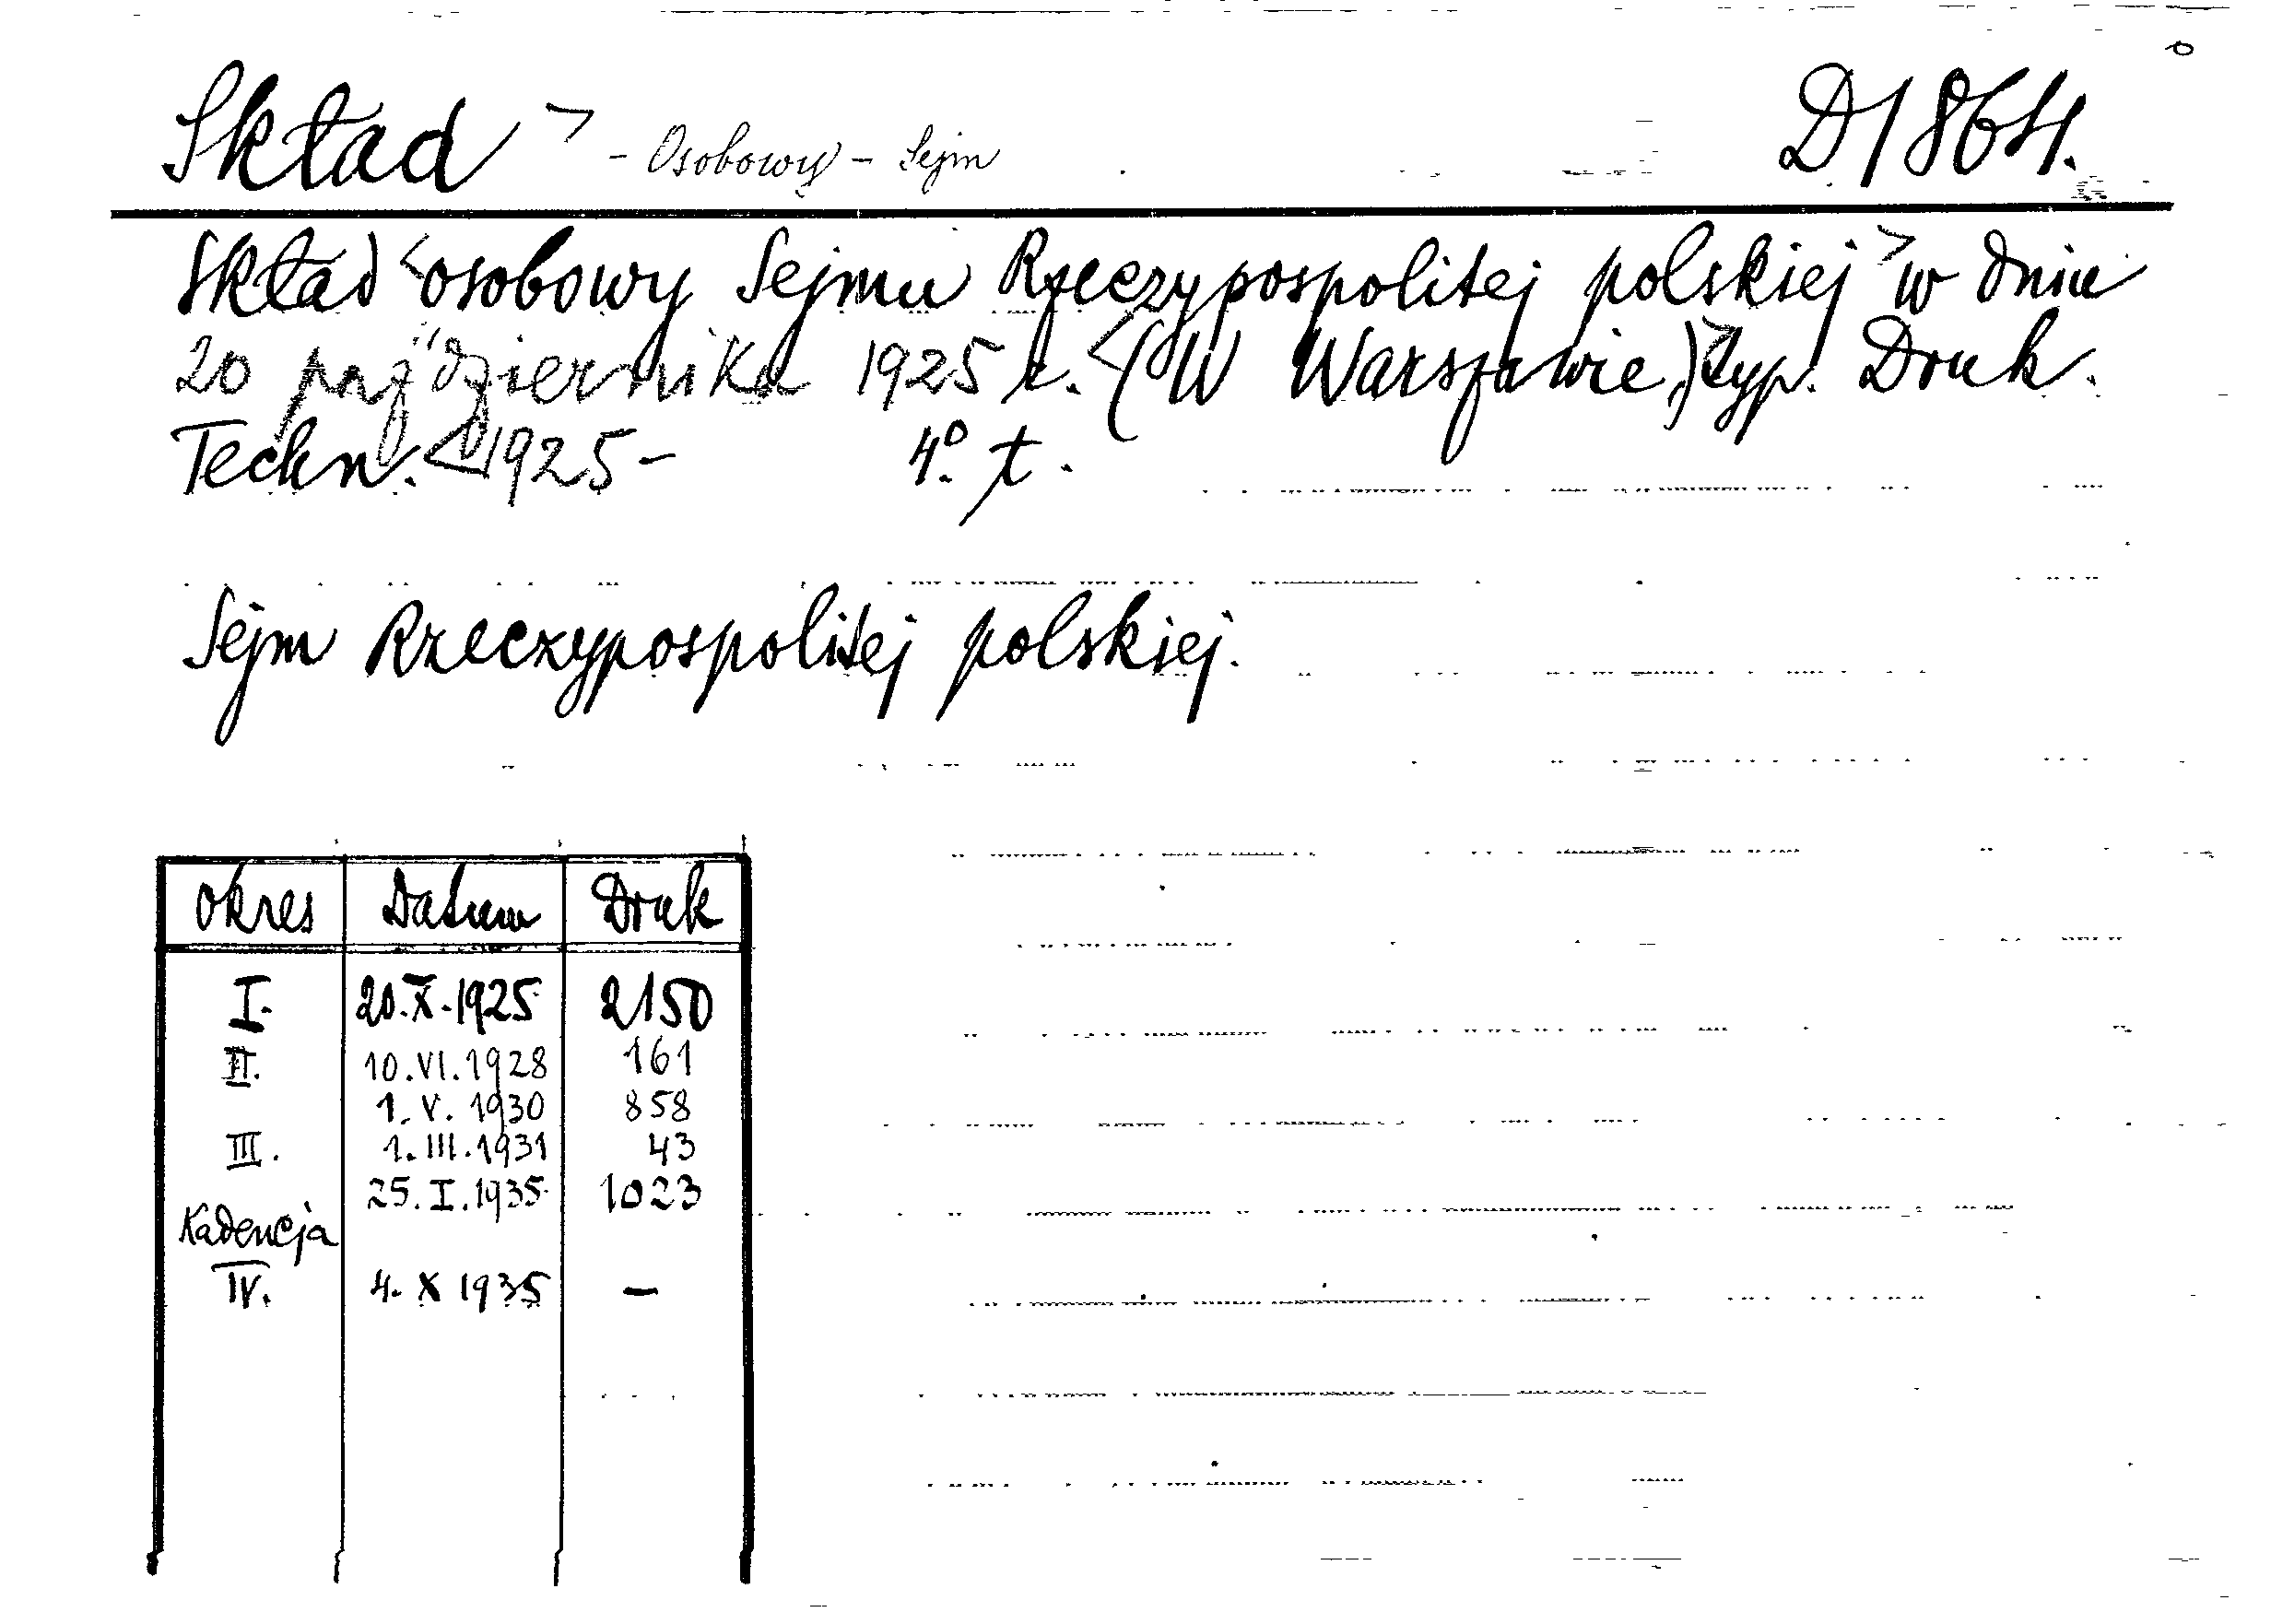 Skład > - Osobowy - Sejm D1864.
Skład <osobowy Sejmu Rzeczypospolitej polskiej> w dniu
20 października 1925 r. <(W Warszawie,)> typ. Druk.
Techn. <1925- 4º. t.
Sejm Rzeczypospolitej polskiej.
Okres Datum Druk
I. 20.X.1925 2150
II. 10.VI.1928 161
1.V.1930 858
III. 1.III.1931 43
25.I.1935 1023
Kadencja
IV. 4.X 1935 —